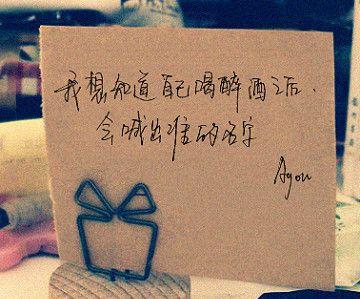 我想知道自己喝醉酒之后.
会喊出谁的名字
Ayou